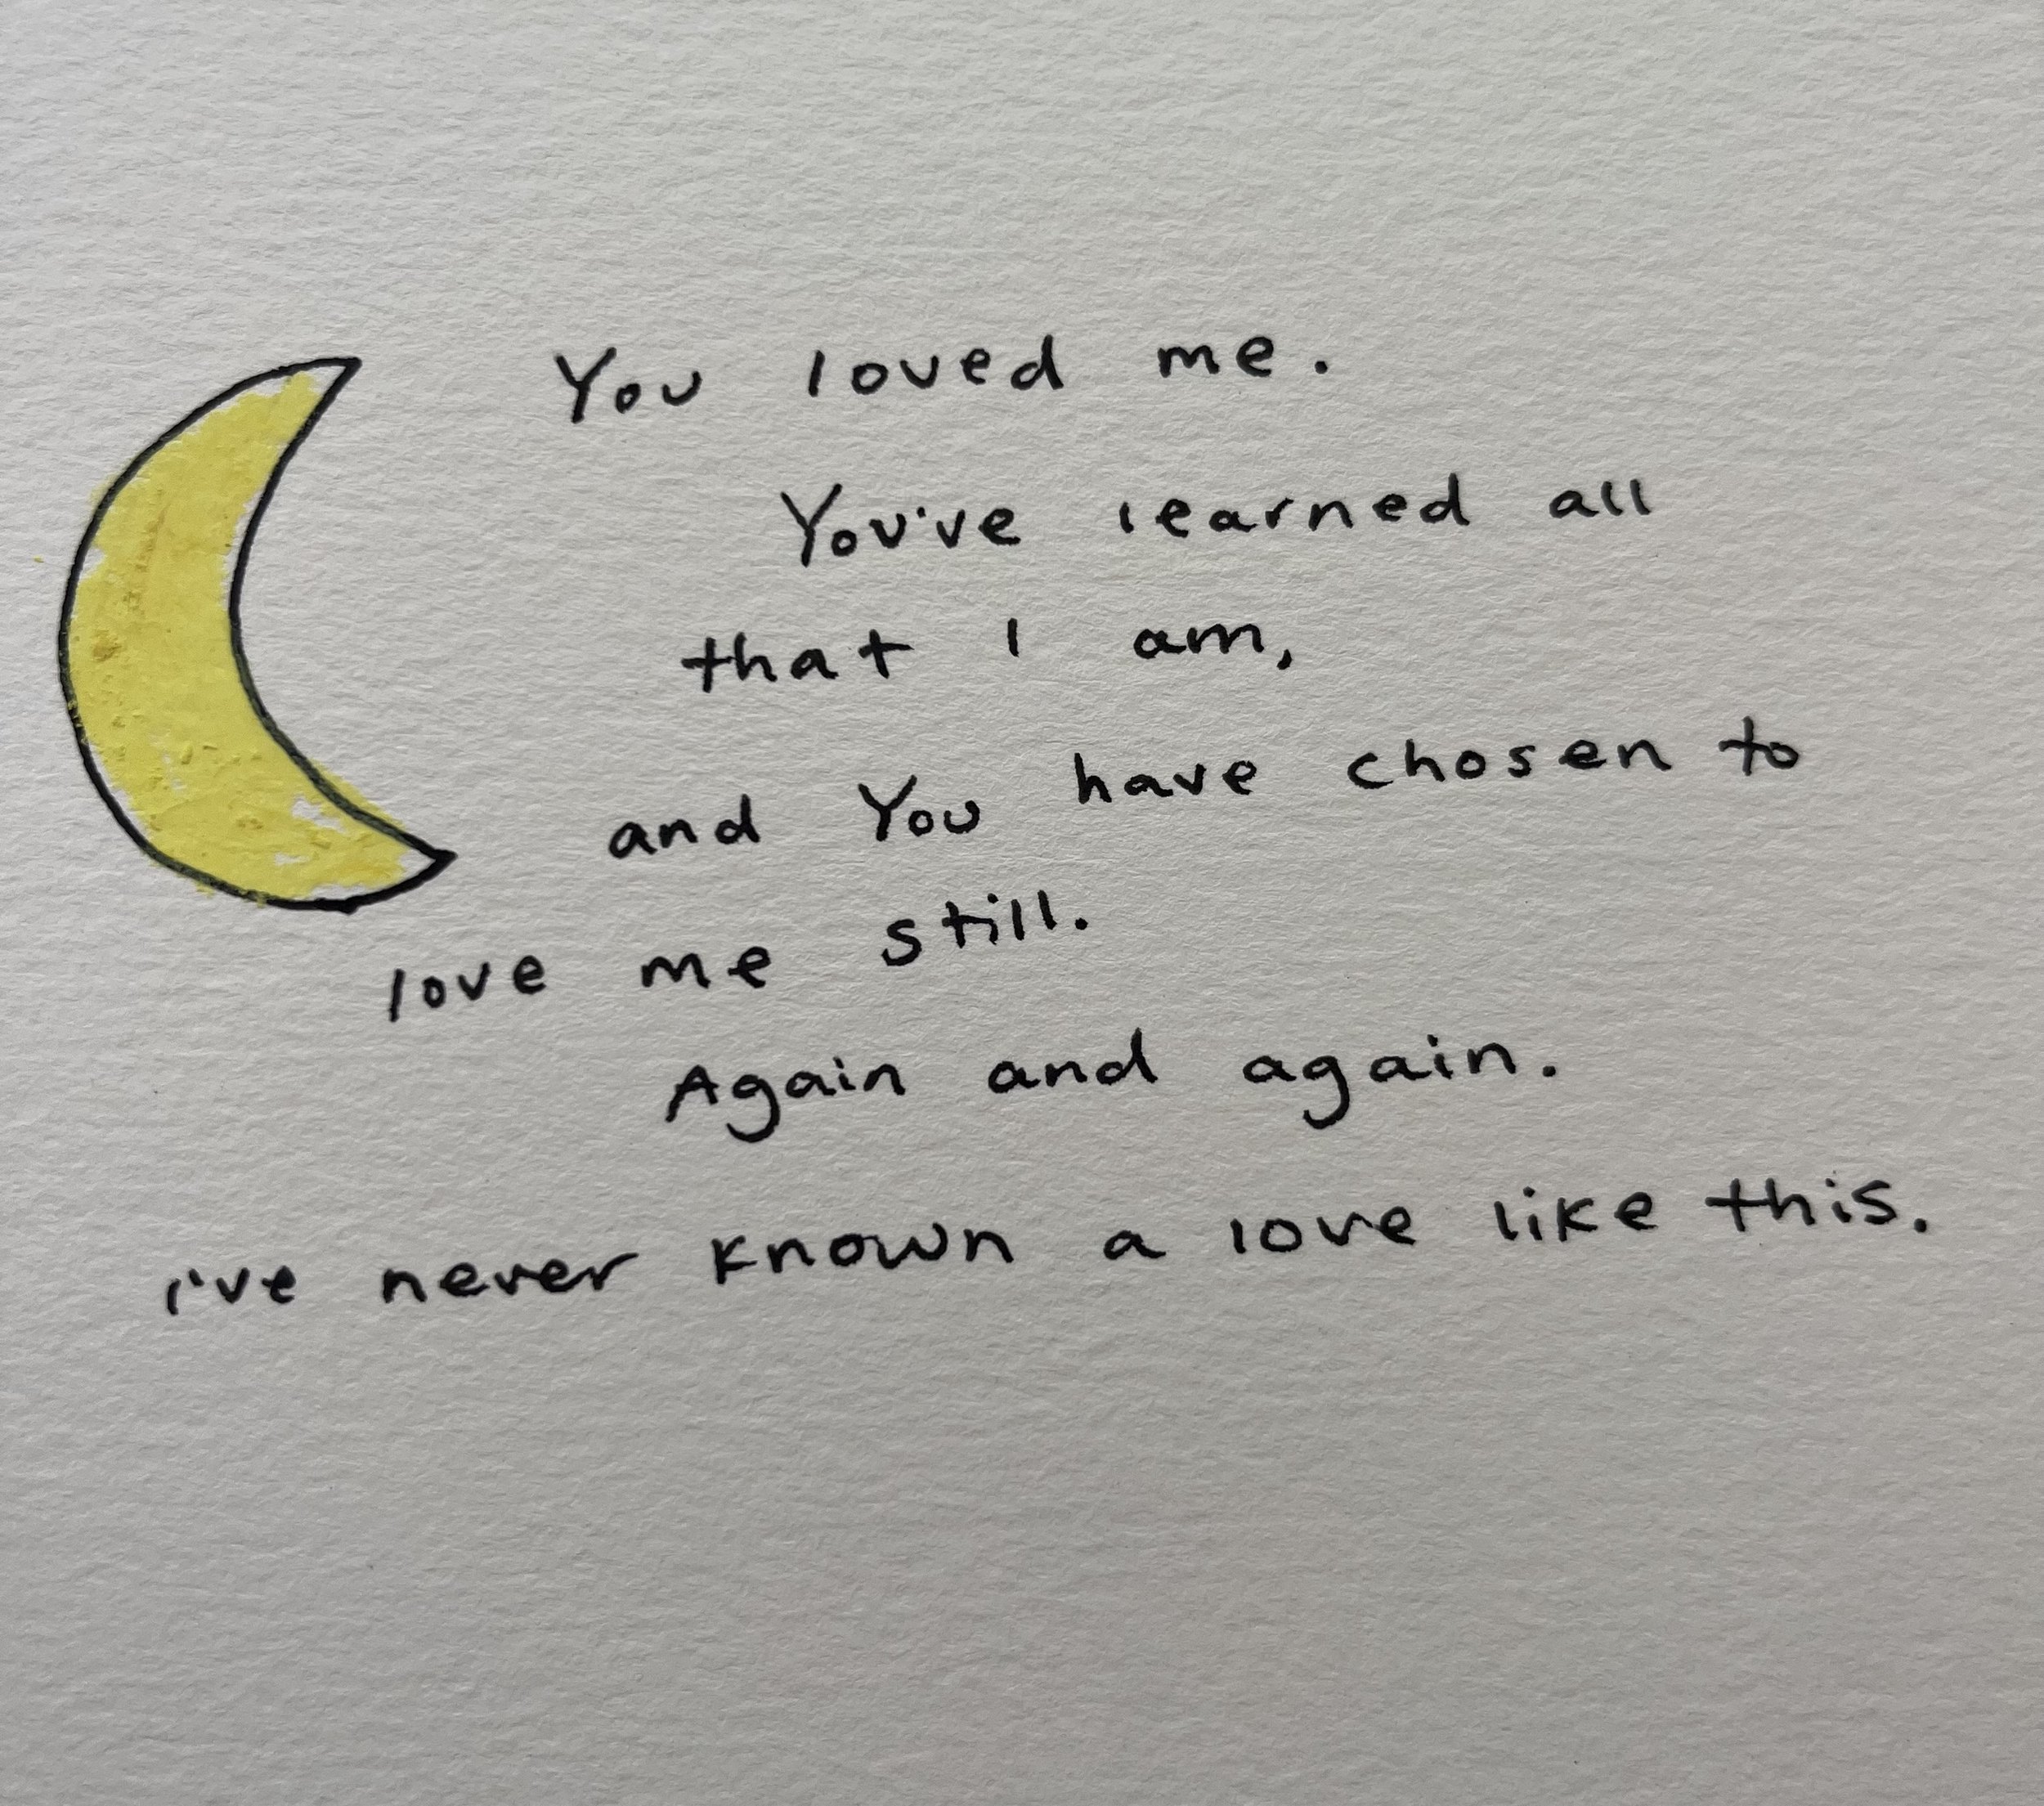 You loved me.
You've learned all
that I am,
and You have chosen to
love me still.
Again and again.
I've never known a love like this.